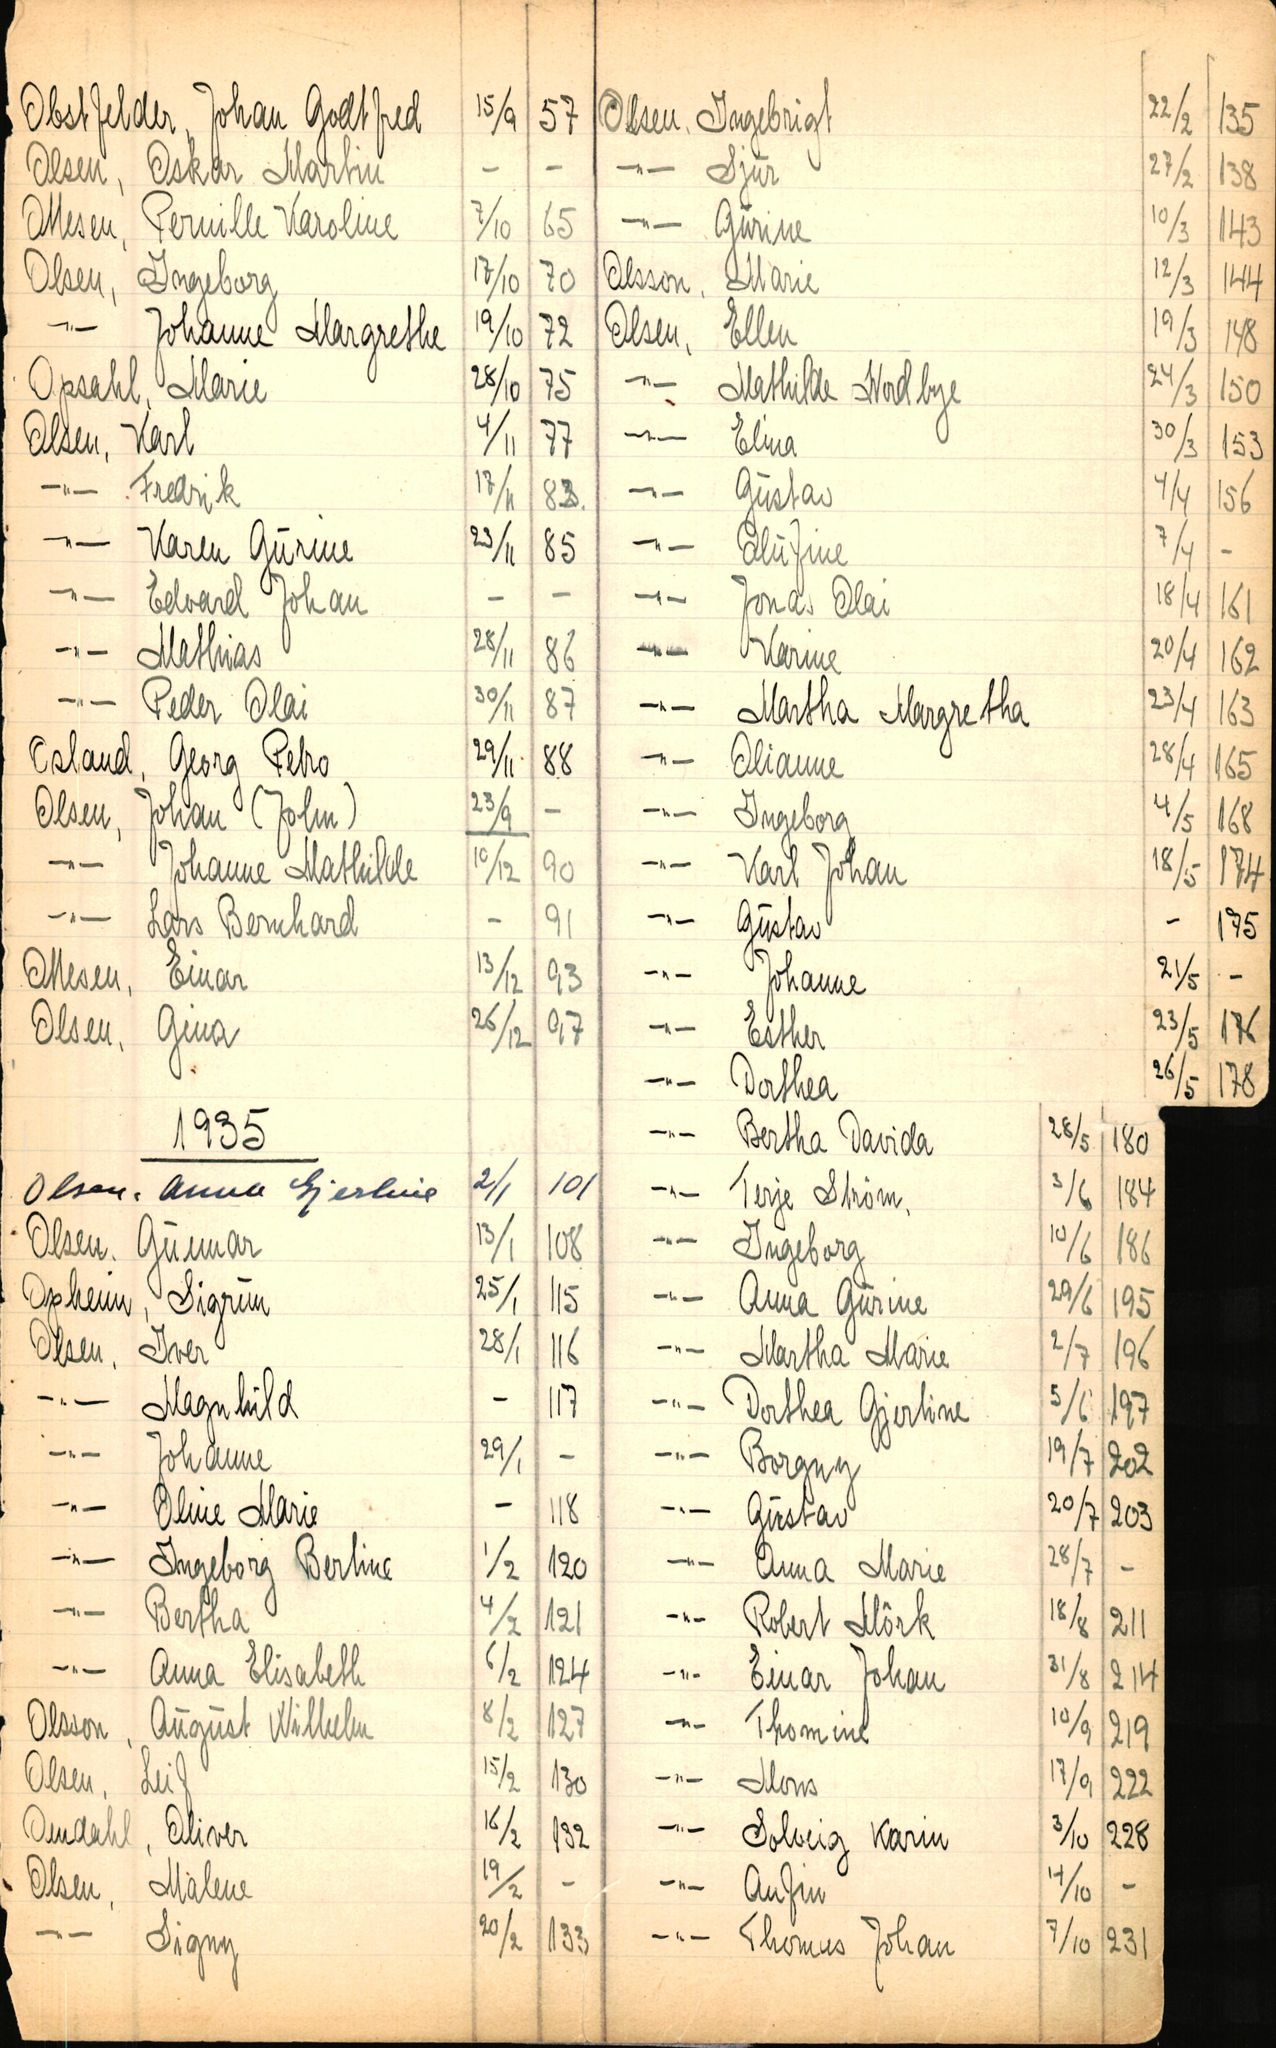 Obstfelder, Johan Godtfred 15/9 57
Olsen, Oskar Martin - -
Ottesen, Pernille Karoline 7/10 65
Olsen, Ingeborg 17/10 70
-"- Johanne Margrethe 19/10 72
Opsahl, Marie 28/10 75
Olsen, Karl 4/11 77
-"- Fredrik 17/11 83.
-"- Karen Gurine 23/11 85
-"- Edvard Johan - -
-"- Mathias 28/11 86
-"- Peder Olai 30/11 87
Osland, Georg Petro 29/11 88
Olsen, Johan (John) 23/9 -
-"- Johanne Mathilde 10/12 90
-"- Lars Bernhard - 91
Ottesen, Einar 13/12 93
Olsen, Gina 26/12 97
1935
Olsen, Anna Gjertine 2/1 101
Olsen. Gunnar 13/1 108
Opheim, Sigrun 25/1 115
Olsen, Iver 28/1 116
-"- Magnhild - 117
-"- Johanne 29/1 -
-"- Oline Marie - 118
-"- Ingeborg Bertine 1/2 120
-"- Bertha 4/2 121
-"- Anna Elisabeth 6/2 124
Olsson, August Wilhelm 8/2 127
Olsen, Leif 15/2 130
Omdahl, Oliver 16/2 132
Olsen, Malene 19/2 -
-"- Signy 20/2 133
Olsen, Ingebrigt 22/2 135
-"- Sjur 27/2 138
-"- Gurine 10/3 143
Olsson, Marie 12/3 144
Olsen, Ellen 19/3 148
-"- Mathilde Nordbye 24/3 150
-"- Elina 30/3 153
-"- Gustav 4/4 156
-"- Olufine 7/4 -
-"- Jonas Olai 18/4 161
-"- Karine 20/4 162
-"- Martha Margretha 23/4 163
-"- Olianne 28/4 165
-"- Ingeborg 4/5 168
-"- Karl Johan 18/5 174
-"- Gustav - 175
-"- Johanne 21/5 -
-"- Esther 23/5 176
-"- Dorthea 26/5 178
-"- Bertha Davida 28/5 180
-"- Terje Ström, 3/6 184
-"- Ingeborg 10/6 186
-"- Anna Gurine 29/6 195
-"- Martha Marie 2/7 196
-"- Dorthea Gjertine 5/6 197
-"- Borgny 19/7 202
-"- Gustav 20/7 203
-"- Anna Marie 28/7 -
-"- Robert Mörk 18/8 211
-"- Einar Johan 31/8 214
-"- Thomine 10/9 219
-"- Mons 17/9 222
-"- Solveig Karin 3/10 228
-"- Anfin 14/10 -
-"- Thomas Johan 7/10 231